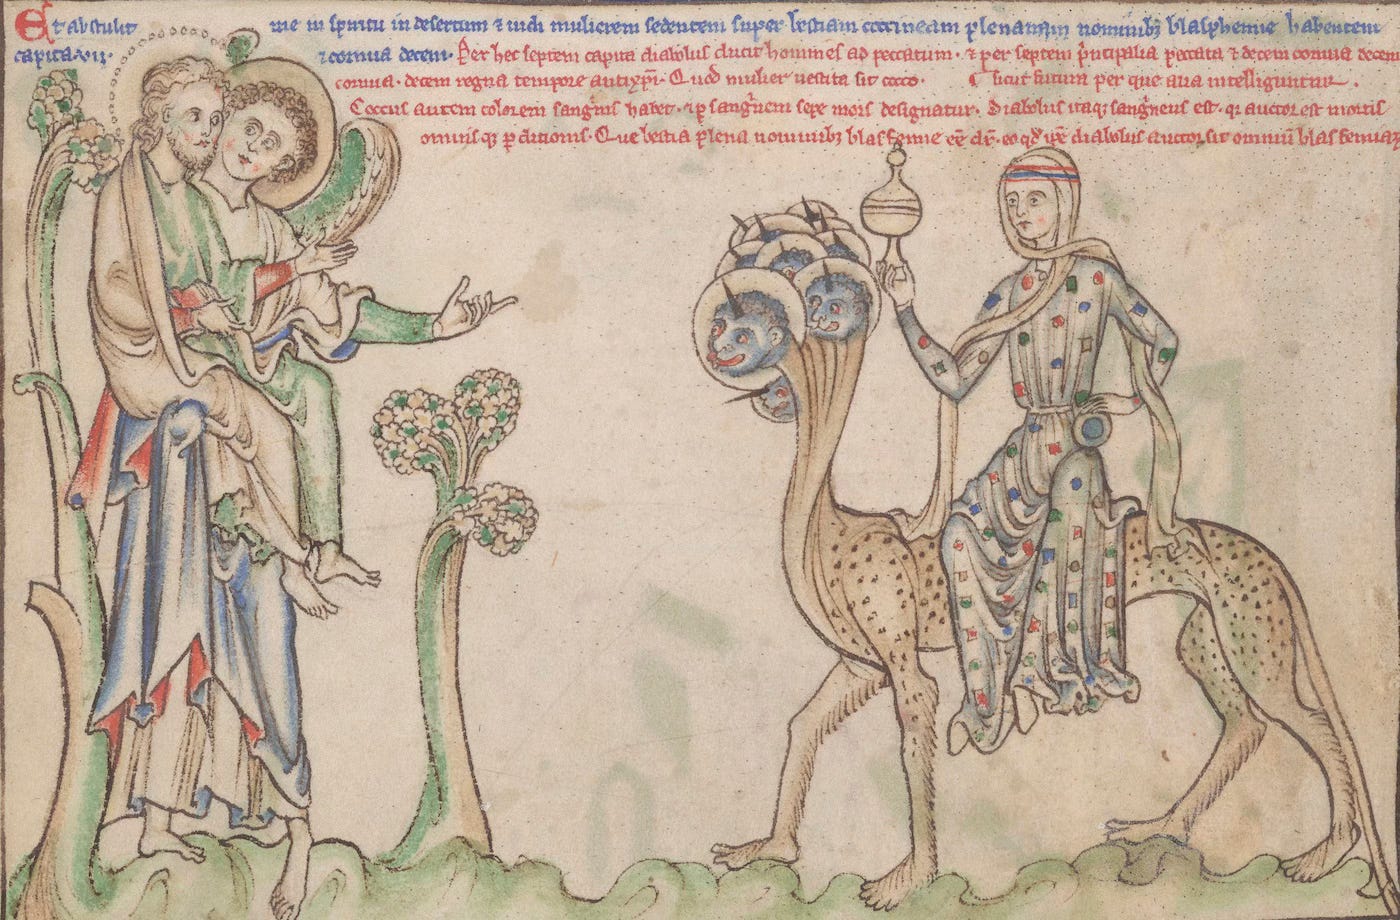 Et abstulit me in spiritu in desertum & uidi mulierem sedentem super bestiam coccineam plenam nominibȝ blasphemie habentem
capita·vii· & cornua decem· Per hec septem capita diabolus ducit homines ad peccatum· & per septem p̃ncipalia peccata & decem cornua decem
cornua· decem regna tempore antixp̃i· Quod mulier uestita sit cocco· sicut sutura per que alia intelliguntur·
Coccus autem colorem sang̃nis habet· & p̱ sang̃uem sepe mors designatur· Diabolus itaqȝ sang̃neus est· q̇ auctor est mortis
omnisqȝ p̱ditionis· Que bestia plena nominibȝ blasfemie eẽ dr̃· eo qd̃ ip̃e diabolus auctor sit omniũ blasfemiaꝝ